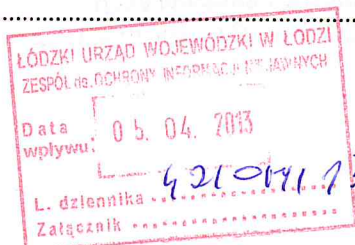 ŁÓDZKI URZĄD WOJEWÓDZKI W ŁODZI
ZESPÓŁ ds. OCHRONY INFORMACJI NIEJAWNYCH
Data
wpływu. 05. 04. 2013
L. dziennika
Załącznik